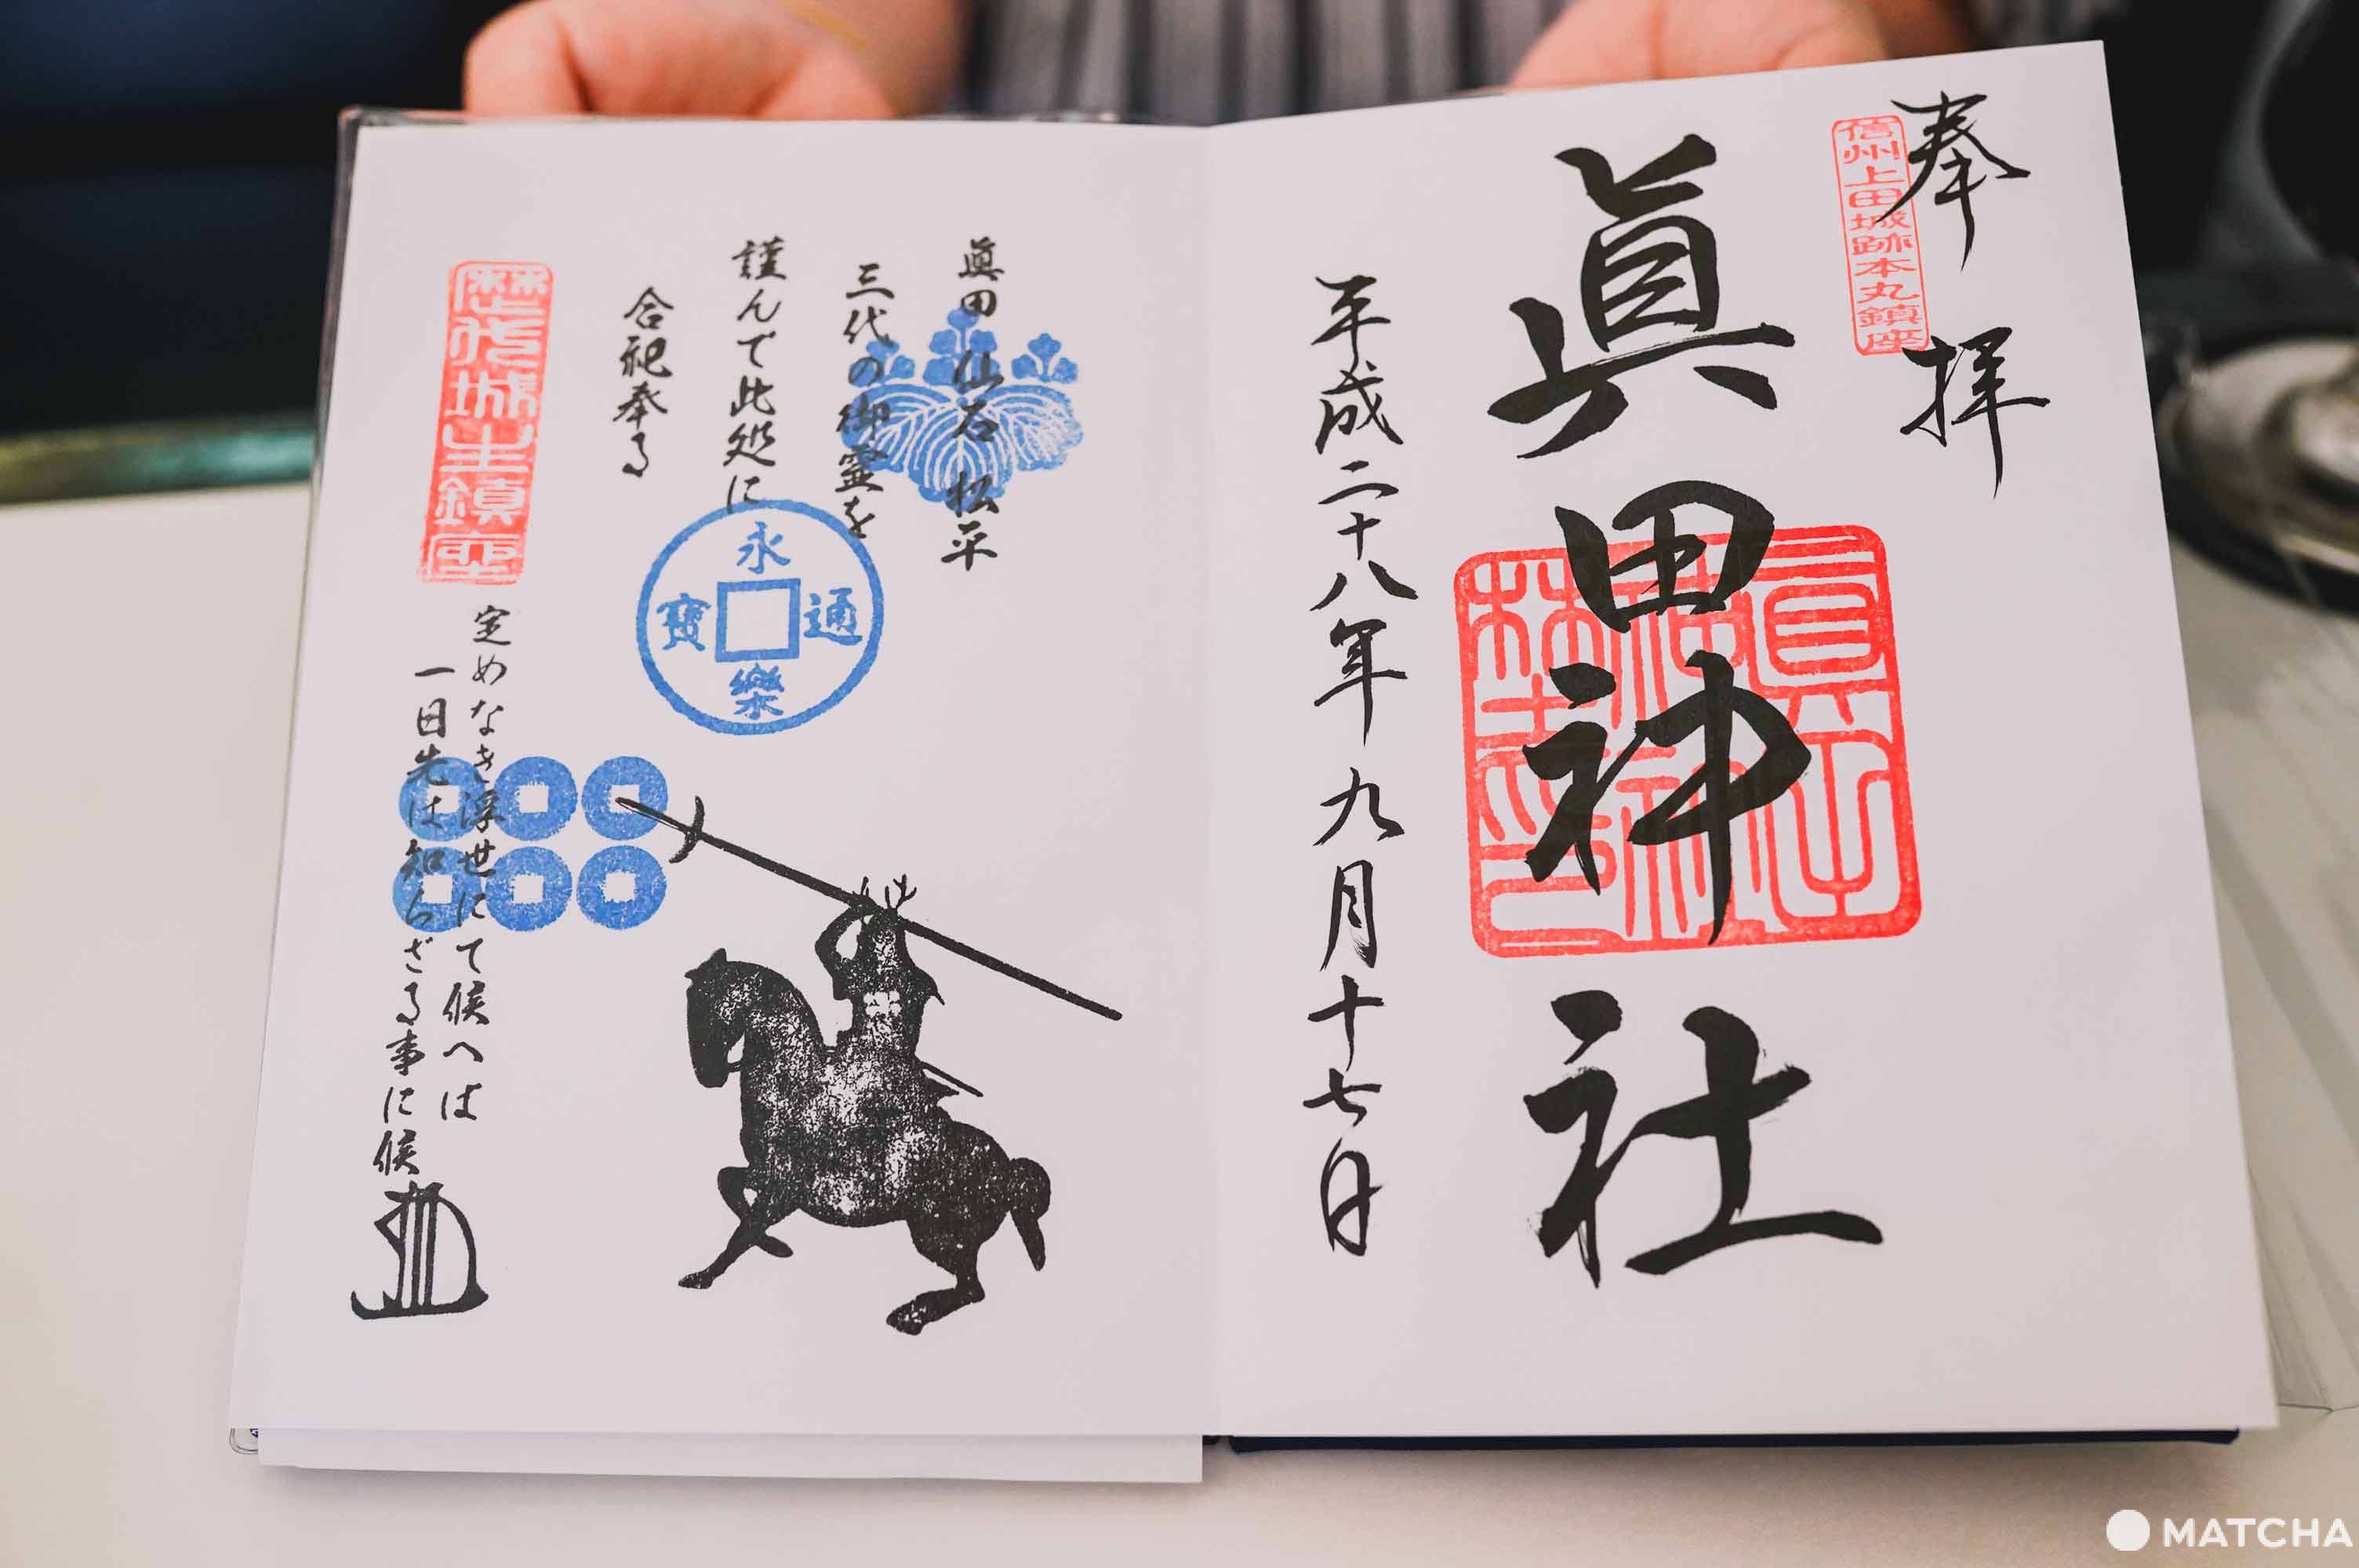 奉拝
信州上田城跡本丸鎮座
眞田神社
眞田神社印
平成二十八年九月十七日
眞田 仙石 松平
三代の御霊を
謹んで此処に
合祀奉る
永樂通寳
歴代城主鎮座
定めなき浮世にて候へは
一日先は知らざる事に候
MATCHA